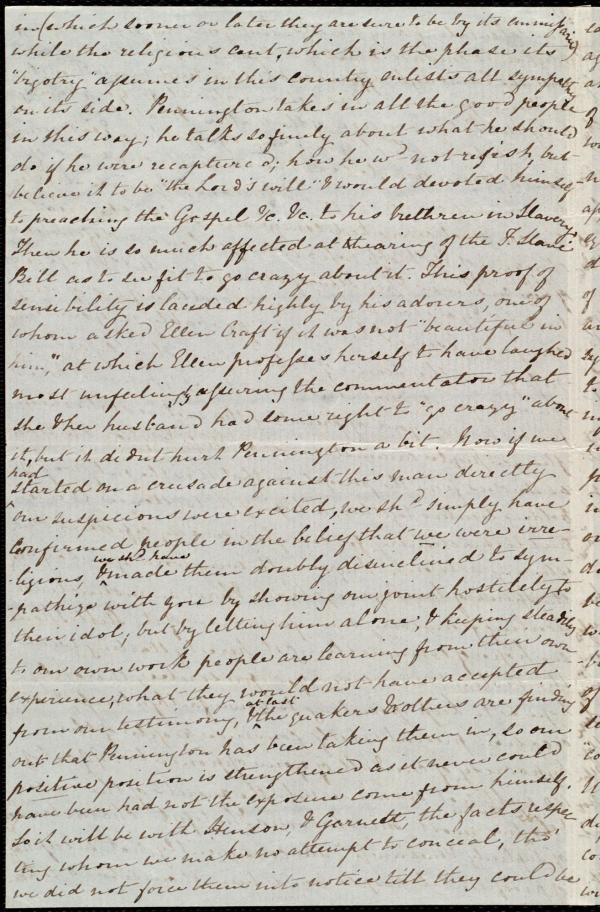 in (which sooner or later they are sure to be by its emissaries)
while the religious cant, which is the phase its
"bigotry" assumes in this country enlists all sympathy
on its side. Pennington takes in all the good people
in this way; he talks so finely about what he should
do if he were recaptured; how he wd. not resist, but
believe it to be "the Lord's will" & would devoted himself
to preaching the Gospel &c. &c. to his brethren in Slavery.
Then he is so much affected at hearing of the F. Slave
Bill as to see fit to go crazy about it. This proof of
sensibility is lauded highly by his adorers, one of
whom asked Ellen Craft if it was not "beautiful in
him," at which Ellen professes herself to have laughed
most unfeelingly assuring the commentator that
she & her husband had some right to "go crazy" about
it, but it didn't hurt Pennington a bit. Now if we
had
started on a crusade against this man directly
our suspicions were excited, we shd. simply have
confirmed people in the belief that we were irre-
we shd. have
-ligious, & made them doubly disinclined to sym-
-pathize with you by showing our joint hostility to
their idol; but by letting him alone, & keeping steadily
to our own work people are learning from their own
experience, what they would not have accepted
at last
from our testimony, & the quakers & others are finding
out that Pennington has been taking them in, so our
positive position is strengthened as it never could
have been had not the exposure come from himself.
So it will be with Henson, & Garnett, the facts respec-
ting whom we make no attempt to conceal, tho'
we did not force them into notice till they could be